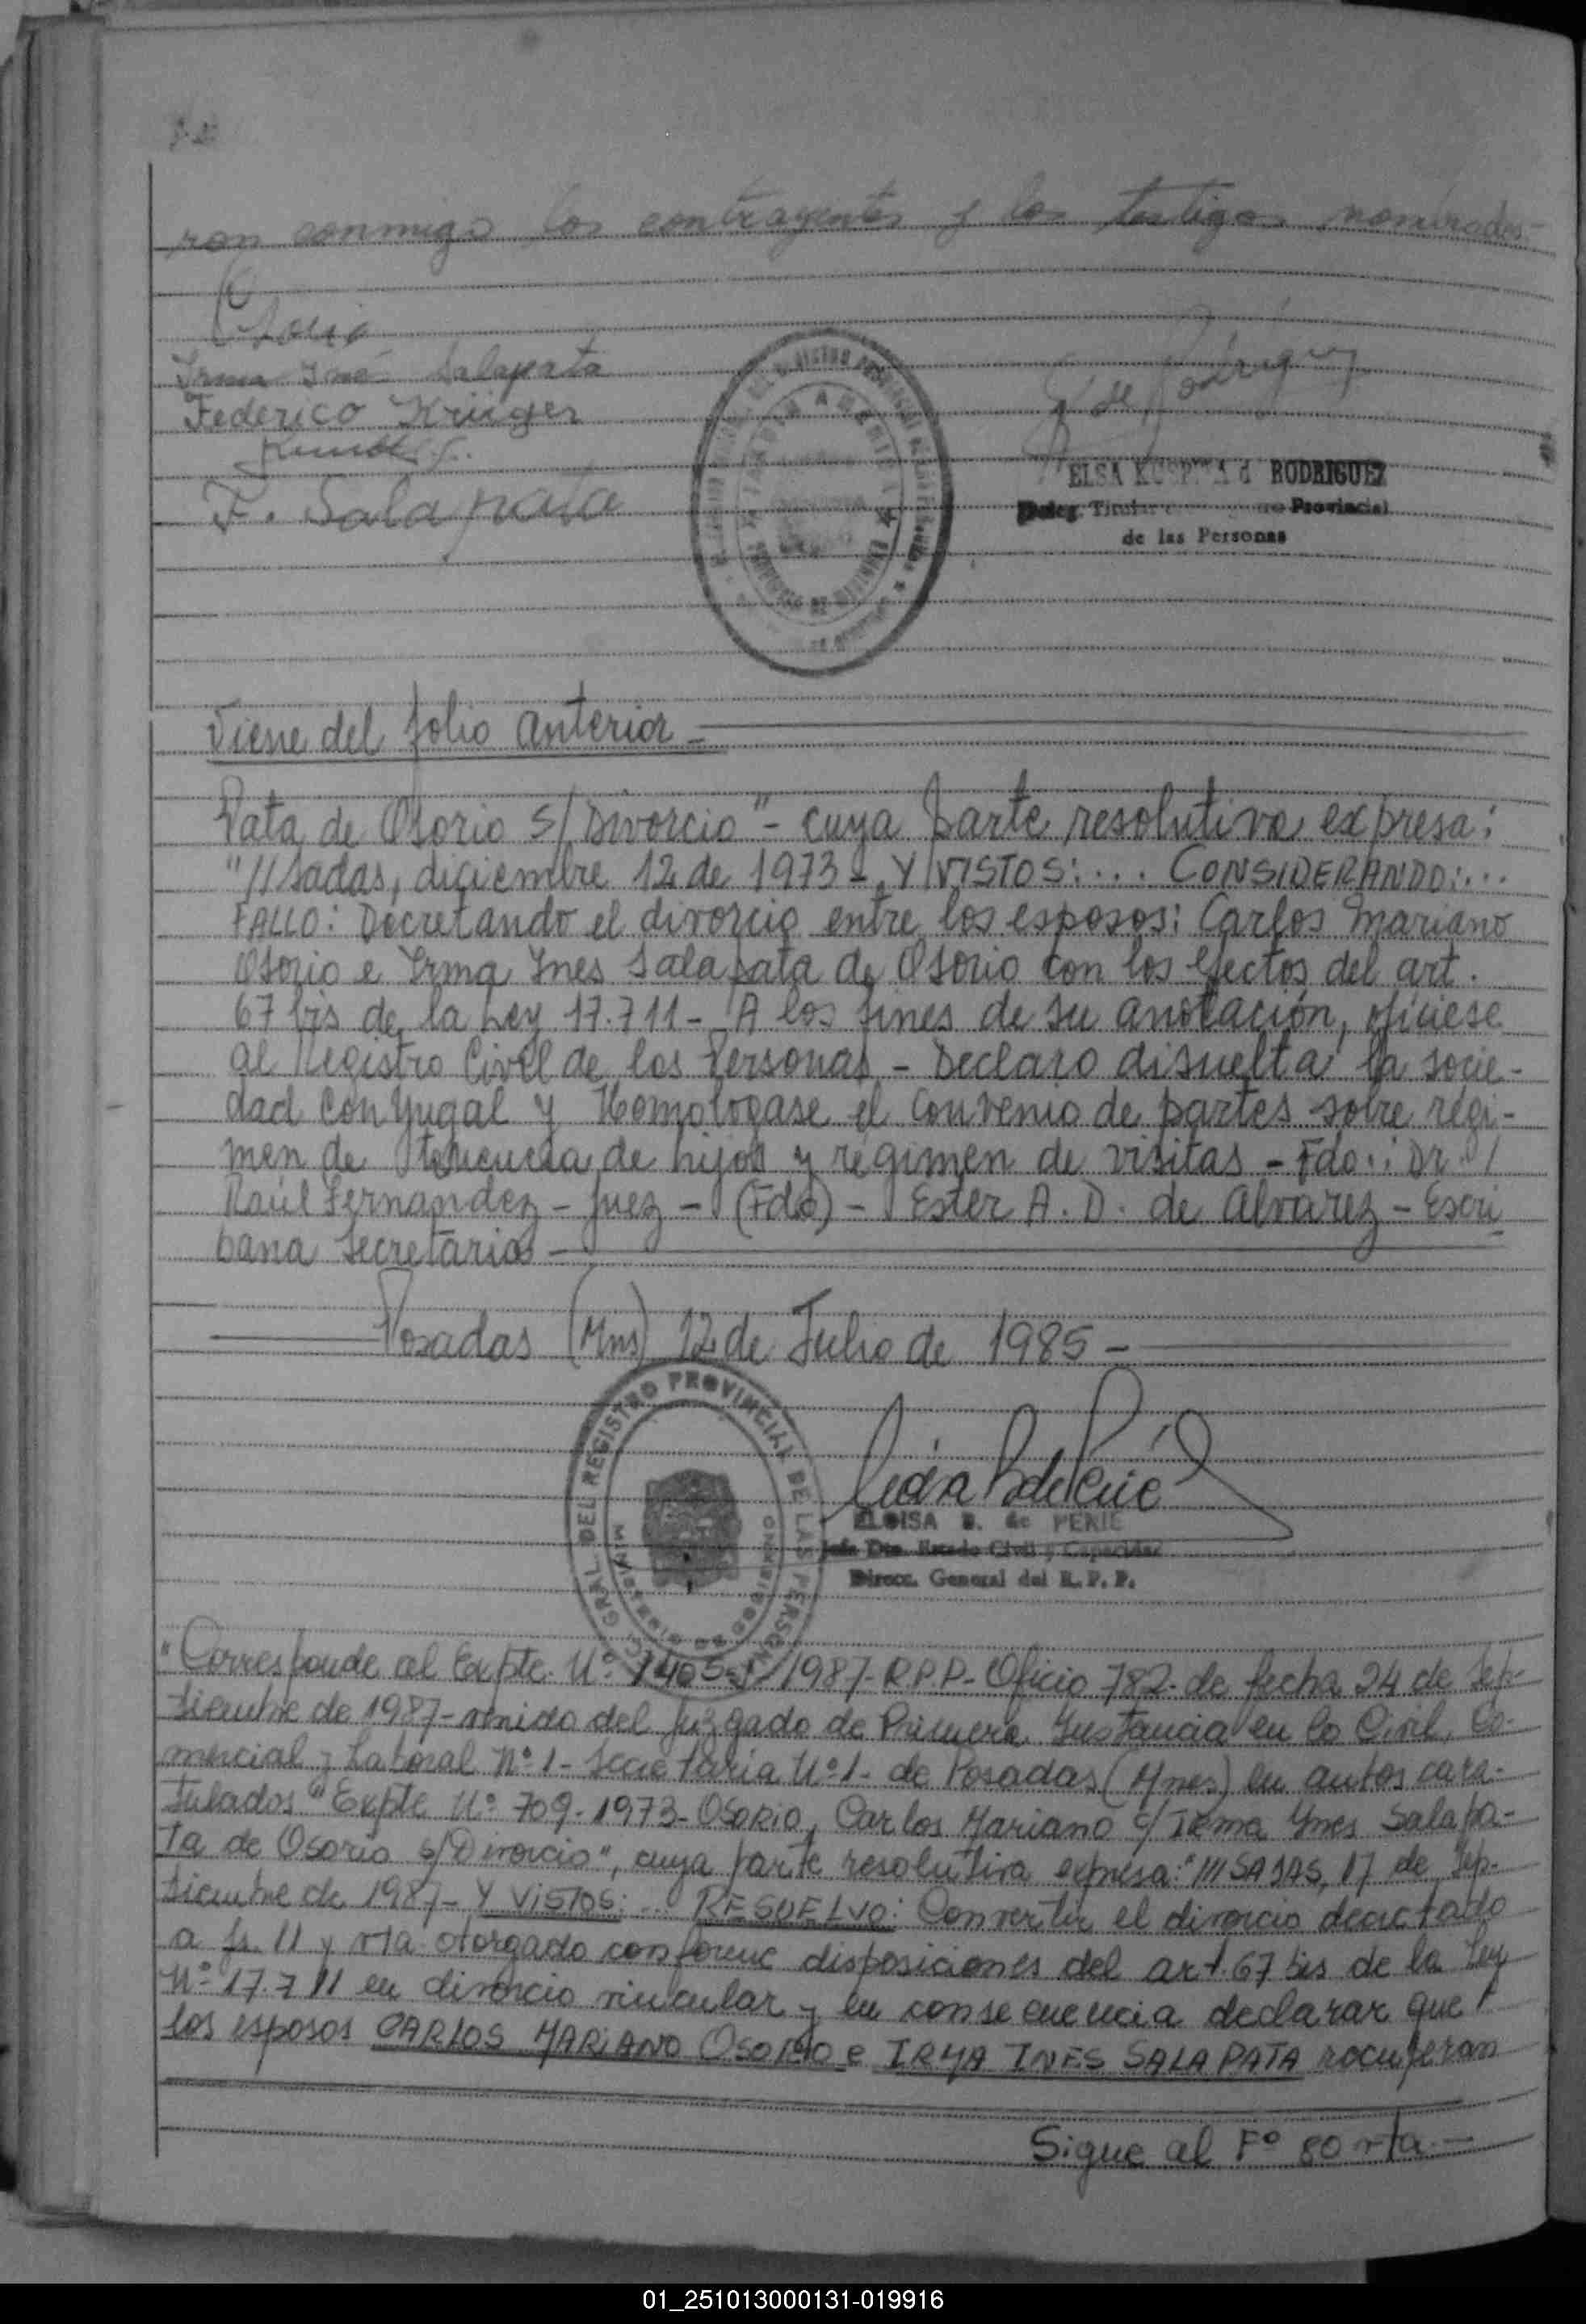 ron conmigo los contrayentes y los testigos nombrados.-
Osorio
Irma Iné Salapata
Federico Krüger
F. Salapata
de Rodriguez
ELSA d RODRIGUEZ
Deleg. Titular Provincial
de las Personas
Viene del folio anterior -
Pata de Osorio S/Divorcio"- cuya parte resolutiva expresa:
"//sadas, diciembre 12 de 1973 -. Y VISTOS: ... CONSIDERANDO: ...
FALLO: Decretando el divorcio entre los esposos: Carlos Mariano
Osorio e Irma Ines Salapata de Osorio con los efectos del art.
67 bis de la Ley 17.711 - A los fines de su anotación, ofíciese
al Registro Civil de las Personas - Declaro disuelta la socie-
dad Conyugal y Homologase el Convenio de partes sobre régi-
men de tenencia de hijos y régimen de visitas - Fdo.: Dr. /
Raúl Fernandez - Juez - (Fdo) - Ester A. D. de Alvarez - Escri
bana Secretaria -
Posadas (Mns) 12 de Julio de 1985 -
GRAL DEL REGISTRO PROVINCIAL DE LAS PERSONAS
MISIONES
ELOISA B. de PERIE
Jefe Dto. Estado Civil y Capacidad
Direcc. General del R. P. P.
"Corresponde al Expte. Nº 1405- /1987- R.P.P- Oficio 782- de fecha 24 de Sep-
tiembre de 1987- venido del Juzgado de Primera Instancia en lo Civil, Co-
mercial y Laboral Nº 1- Secretaría Nº 1- de Posadas (Mnes) en autos cara-
tulados "Expte Nº 709-1973- OSORIO, Carlos Mariano c/ IRMA Ynes Salapa-
ta de Osorio s/Divorcio", cuya parte resolutiva expresa: "///SADAS, 17 de Sep-
tiembre de 1987- Y VISTOS: ... RESUELVO: Convertir el divorcio decretado
a fs. 11 y vta otorgado conforme disposiciones del art 67 bis de la Ley
Nº 17.711 en divorcio vincular y en consecuencia declarar que
los esposos CARLOS MARIANO OSORIO e IRMA INES SALAPATA recuperan
Sigue al Fº 80 vta.-
01_251013000131-019916